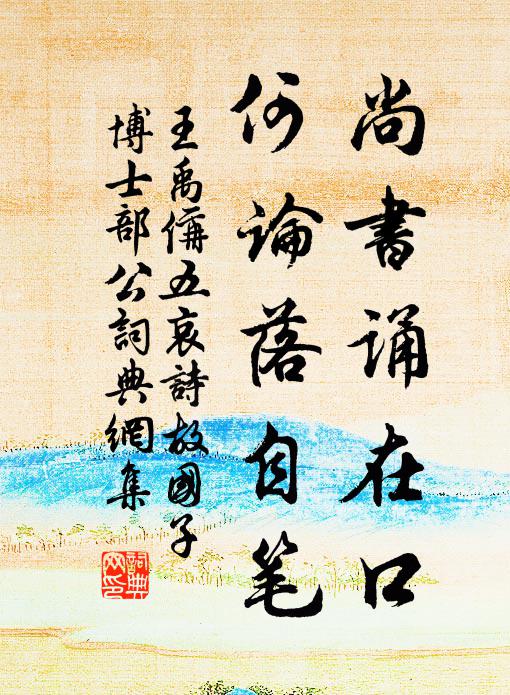 尚書誦在口
何論落自笔
王禹偁五哀詩故國子
博士部公詞典網集
詞典